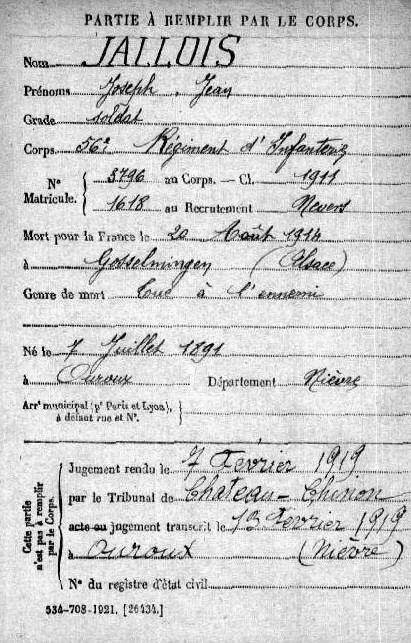 PARTIE À REMPLIR PAR LE CORPS.
Nom JALLOIS
Prénoms Joseph, Jean
Grade soldat
Corps 56e Régiment d'Infanterie
N° Matricule. { 3796 au Corps. — Cl. 1911
1618 au Recrutement Nevers
Mort pour la France le 20 Août 1914
à Gosselmingen (Alsace)
Genre de mort Tué à l'ennemi
Né le 7 Juillet 1891
à Ouroux Département Nièvre
Arrt municipal (pr Paris et Lyon), à défaut rue et N°.
Cette partie n'est pas à remplir par le Corps.
Jugement rendu le 7 Février 1919
par le Tribunal de Chateau-Chinon
acte ou jugement transcrit le 13 Fevrier 1919
à Ouroux (Nièvre)
N° du registre d'état civil
534-708-1921. [26434.]